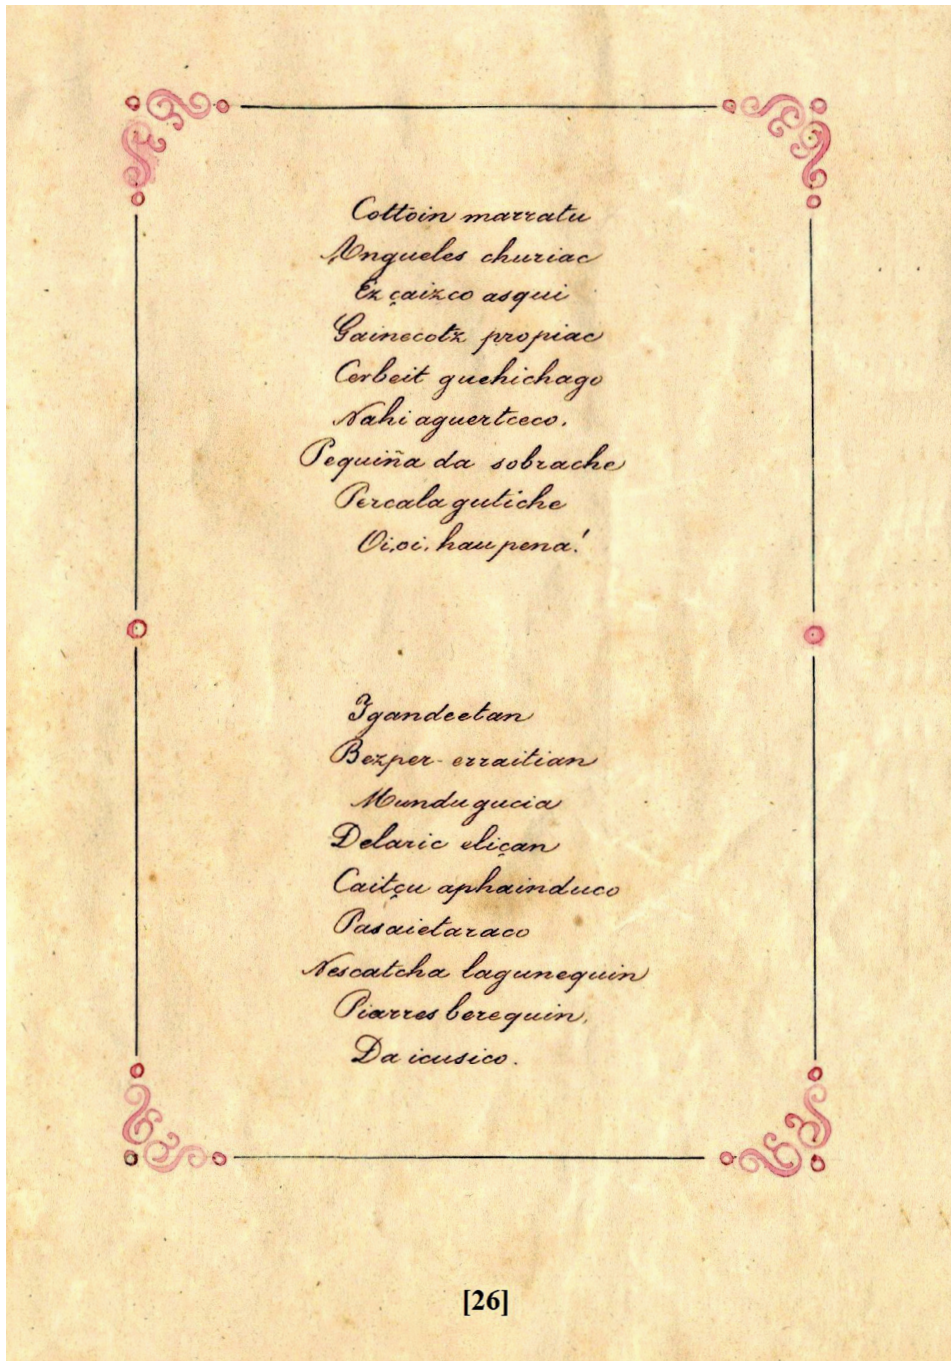 Cottoin marratu
Angueles churiac
Ez çaizco asqui
Gainecotz propiac
Cerbeit guehichago
Nahi aguertceco.
Pequiña da sobrache
Percala gutiche
Oi, oi, hau pena!
Igandeetan
Bezper-erraitian
Mundu gucia
Delaric eliçan
Caitçu aphainduco
Pasaietaraco
Nescatcha lagunequin
Piarres berequin,
Da icusico.
[26]